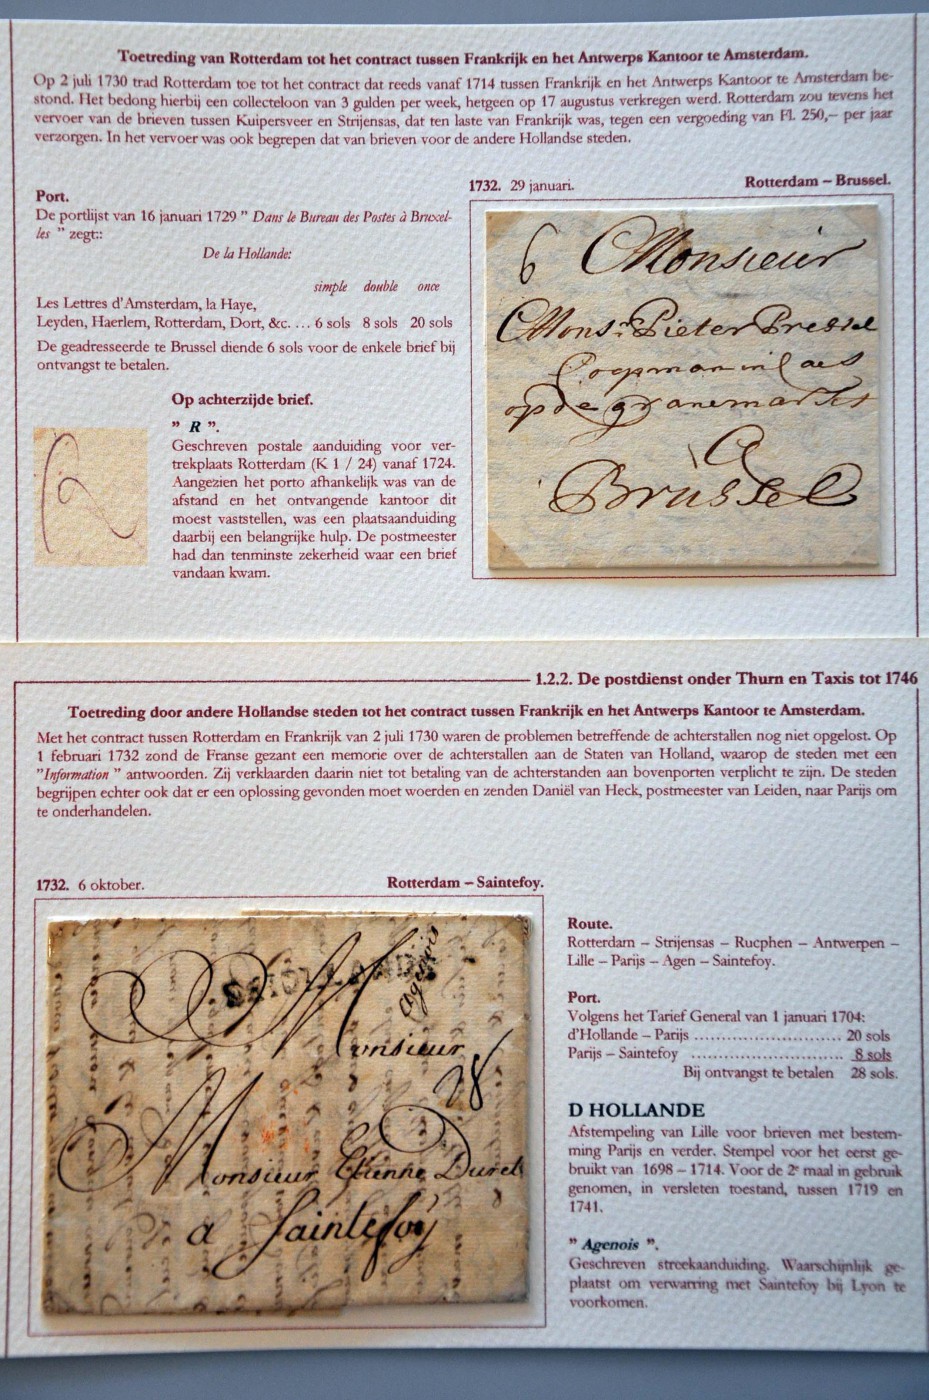 Toetreding van Rotterdam tot het contract tussen Frankrijk en het Antwerps Kantoor te Amsterdam.
Op 2 juli 1730 trad Rotterdam toe tot het contract dat reeds vanaf 1714 tussen Frankrijk en het Antwerps Kantoor te Amsterdam be-
stond. Het bedong hierbij een collecteloon van 3 gulden per week, hetgeen op 17 augustus verkregen werd. Rotterdam zou tevens het
vervoer van de brieven tussen Kuipersveer en Strijensas, dat ten laste van Frankrijk was, tegen een vergoeding van Fl. 250,– per jaar
verzorgen. In het vervoer was ook begrepen dat van brieven voor de andere Hollandse steden.
Port.
De portlijst van 16 januari 1729 ” Dans le Bureau des Postes à Bruxel-
les ” zegt::
De la Hollande:
simple double once
Les Lettres d'Amsterdam, la Haye,
Leyden, Haerlem, Rotterdam, Dort, &c. ... 6 sols 8 sols 20 sols
De geadresseerde te Brussel diende 6 sols voor de enkele brief bij
ontvangst te betalen.
Op achterzijde brief.
” R ”.
Geschreven postale aanduiding voor ver-
trekplaats Rotterdam (K 1 / 24) vanaf 1724.
Aangezien het porto afhankelijk was van de
afstand en het ontvangende kantoor dit
moest vaststellen, was een plaatsaanduiding
daarbij een belangrijke hulp. De postmeester
had dan tenminste zekerheid waar een brief
vandaan kwam.
R
1732. 29 januari.
Rotterdam – Brussel.
6 Monsieur
Monsr Pieter Pressel
Coopman in Laes
op de granemarkt
A
Brussel
1.2.2. De postdienst onder Thurn en Taxis tot 1746
Toetreding door andere Hollandse steden tot het contract tussen Frankrijk en het Antwerps Kantoor te Amsterdam.
Met het contract tussen Rotterdam en Frankrijk van 2 juli 1730 waren de problemen betreffende de achterstallen nog niet opgelost. Op
1 februari 1732 zond de Franse gezant een memorie over de achterstallen aan de Staten van Holland, waarop de steden met een
”Information ” antwoorden. Zij verklaarden daarin niet tot betaling van de achterstanden aan bovenporten verplicht te zijn. De steden
begrijpen echter ook dat er een oplossing gevonden moet woerden en zenden Daniël van Heck, postmeester van Leiden, naar Parijs om
te onderhandelen.
1732. 6 oktober.
Rotterdam – Saintefoy.
D HOLLANDE
Agenois
Monsieur
28
Monsieur Etienne Duret
a Saintefoy
Route.
Rotterdam – Strijensas – Rucphen – Antwerpen –
Lille – Parijs – Agen – Saintefoy.
Port.
Volgens het Tarief General van 1 januari 1704:
d'Hollande – Parijs ........................ 20 sols
Parijs – Saintefoy ........................ 8 sols
Bij ontvangst te betalen 28 sols.
D HOLLANDE
Afstempeling van Lille voor brieven met bestem-
ming Parijs en verder. Stempel voor het eerst ge-
bruikt van 1698 – 1714. Voor de 2e maal in gebruik
genomen, in versleten toestand, tussen 1719 en
1741.
” Agenois ”.
Geschreven streekaanduiding. Waarschijnlijk ge-
plaatst om verwarring met Saintefoy bij Lyon te
voorkomen.